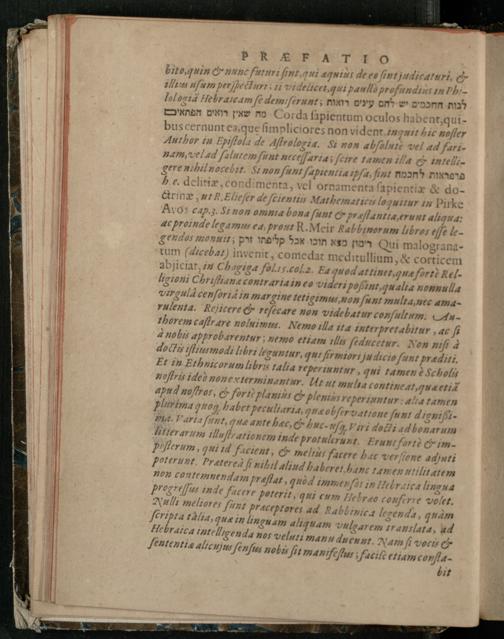 PRÆFATIO
bito, quin & nunc futuri sint, qui æquius de eo sint judicaturi, &
illius usum perspecturi: ii videlicet, qui paullò profundius in Phi-
lologiâ Hebraicam se demiserunt; לבות החכמים יש להם עינים רואות
מה שאין רואים הפתאים Corda sapientum oculos habent, qui-
bus cernunt ea, que simpliciores non vident. inquit hic noster
Author in Epistola de Astrologia. Si non absolutè vel ad fari-
nam, vel ad salutem sunt necessaria; scire tamen illa & intelli-
gere nihil nocebit. Si non sunt sapientia ipsa, sint פרפראות לחכמה
h.e. delitiæ, condimenta, vel ornamenta sapientiæ & do-
ctrinæ, ut R. Elieser de scientiis Mathematicis loquitur in Pirke
Avos cap. 3. Si non omnia bona sunt & præstantia, erunt aliqua:
ac proinde legamus ea, pront R. Meir Rabbinorum libros esse le-
gendos monuit; רימון מצא תוכו אכל קליפתו זרק Qui malograna-
tum (dicebat) invenit, comedat meditullium, & corticem
abjiciat, in Chagiga fol. 15. col. 2. Ea quod attinet, quæ fortè Rel-
ligioni Christianæ contraria in eo videri possint, qualia nonnulla
virgulâ censoriâ in margine tetigimus, non sunt multa, nec ama-
rulenta. Rejicere & resecare non videbatur consultum. Au-
thorem castrare noluimus. Nemo illa ita interpretabitur, ac si
à nobis approbarentur; nemo etiam illis seducetur. Non nisi à
doctis istiusmodi libri leguntur, qui firmiori judicio sunt præditi.
Et in Ethnicorum libris talia reperiuntur, qui tamen è Scholis
nostris ideò non exterminantur. Ut ut multa contineat, quæ etiã
apud nostros, & fortè planius & plenius reperiuntur: alia tamen
plurima quoq; habet peculiaria, quæ observatione sunt dignissi-
ma. Varia sunt, quæ ante hac, & huc-usq; Viri docti ad bonarum
litterarum illustrationem inde protulerunt. Erunt fortè & im-
posterum, qui id facient, & melius facere hac versione adjuti
poterunt. Prætereà si nihil aliud haberet, hanc tamen utilitatem
non contemnendam præstat, quòd immensos in Hebraica lingua
progressus inde facere poterit, qui cum Hebræo conferre volet.
Nulli meliores sunt præceptores ad Rabbinica legenda, quàm
scripta talia, quæ in linguam aliquam vulgarem translata, ad
Hebraica intelligenda nos veluti manu ducunt. Nam si vocis &
sententiæ alicujus sensus nobis sit manifestus, facilè etiam consta-
bit